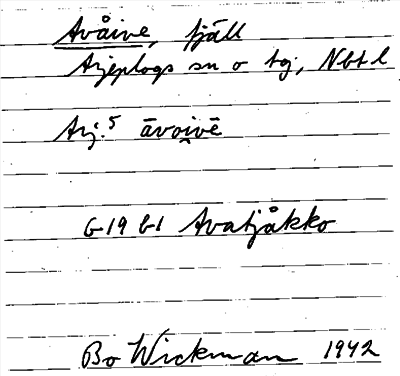 Avåive, fjäll
Arjeplogs sn o tg, Nbt l
Arj.5 āvoi̭vē
G 19 b1 Avatjåkko
Bo Wickman 1942